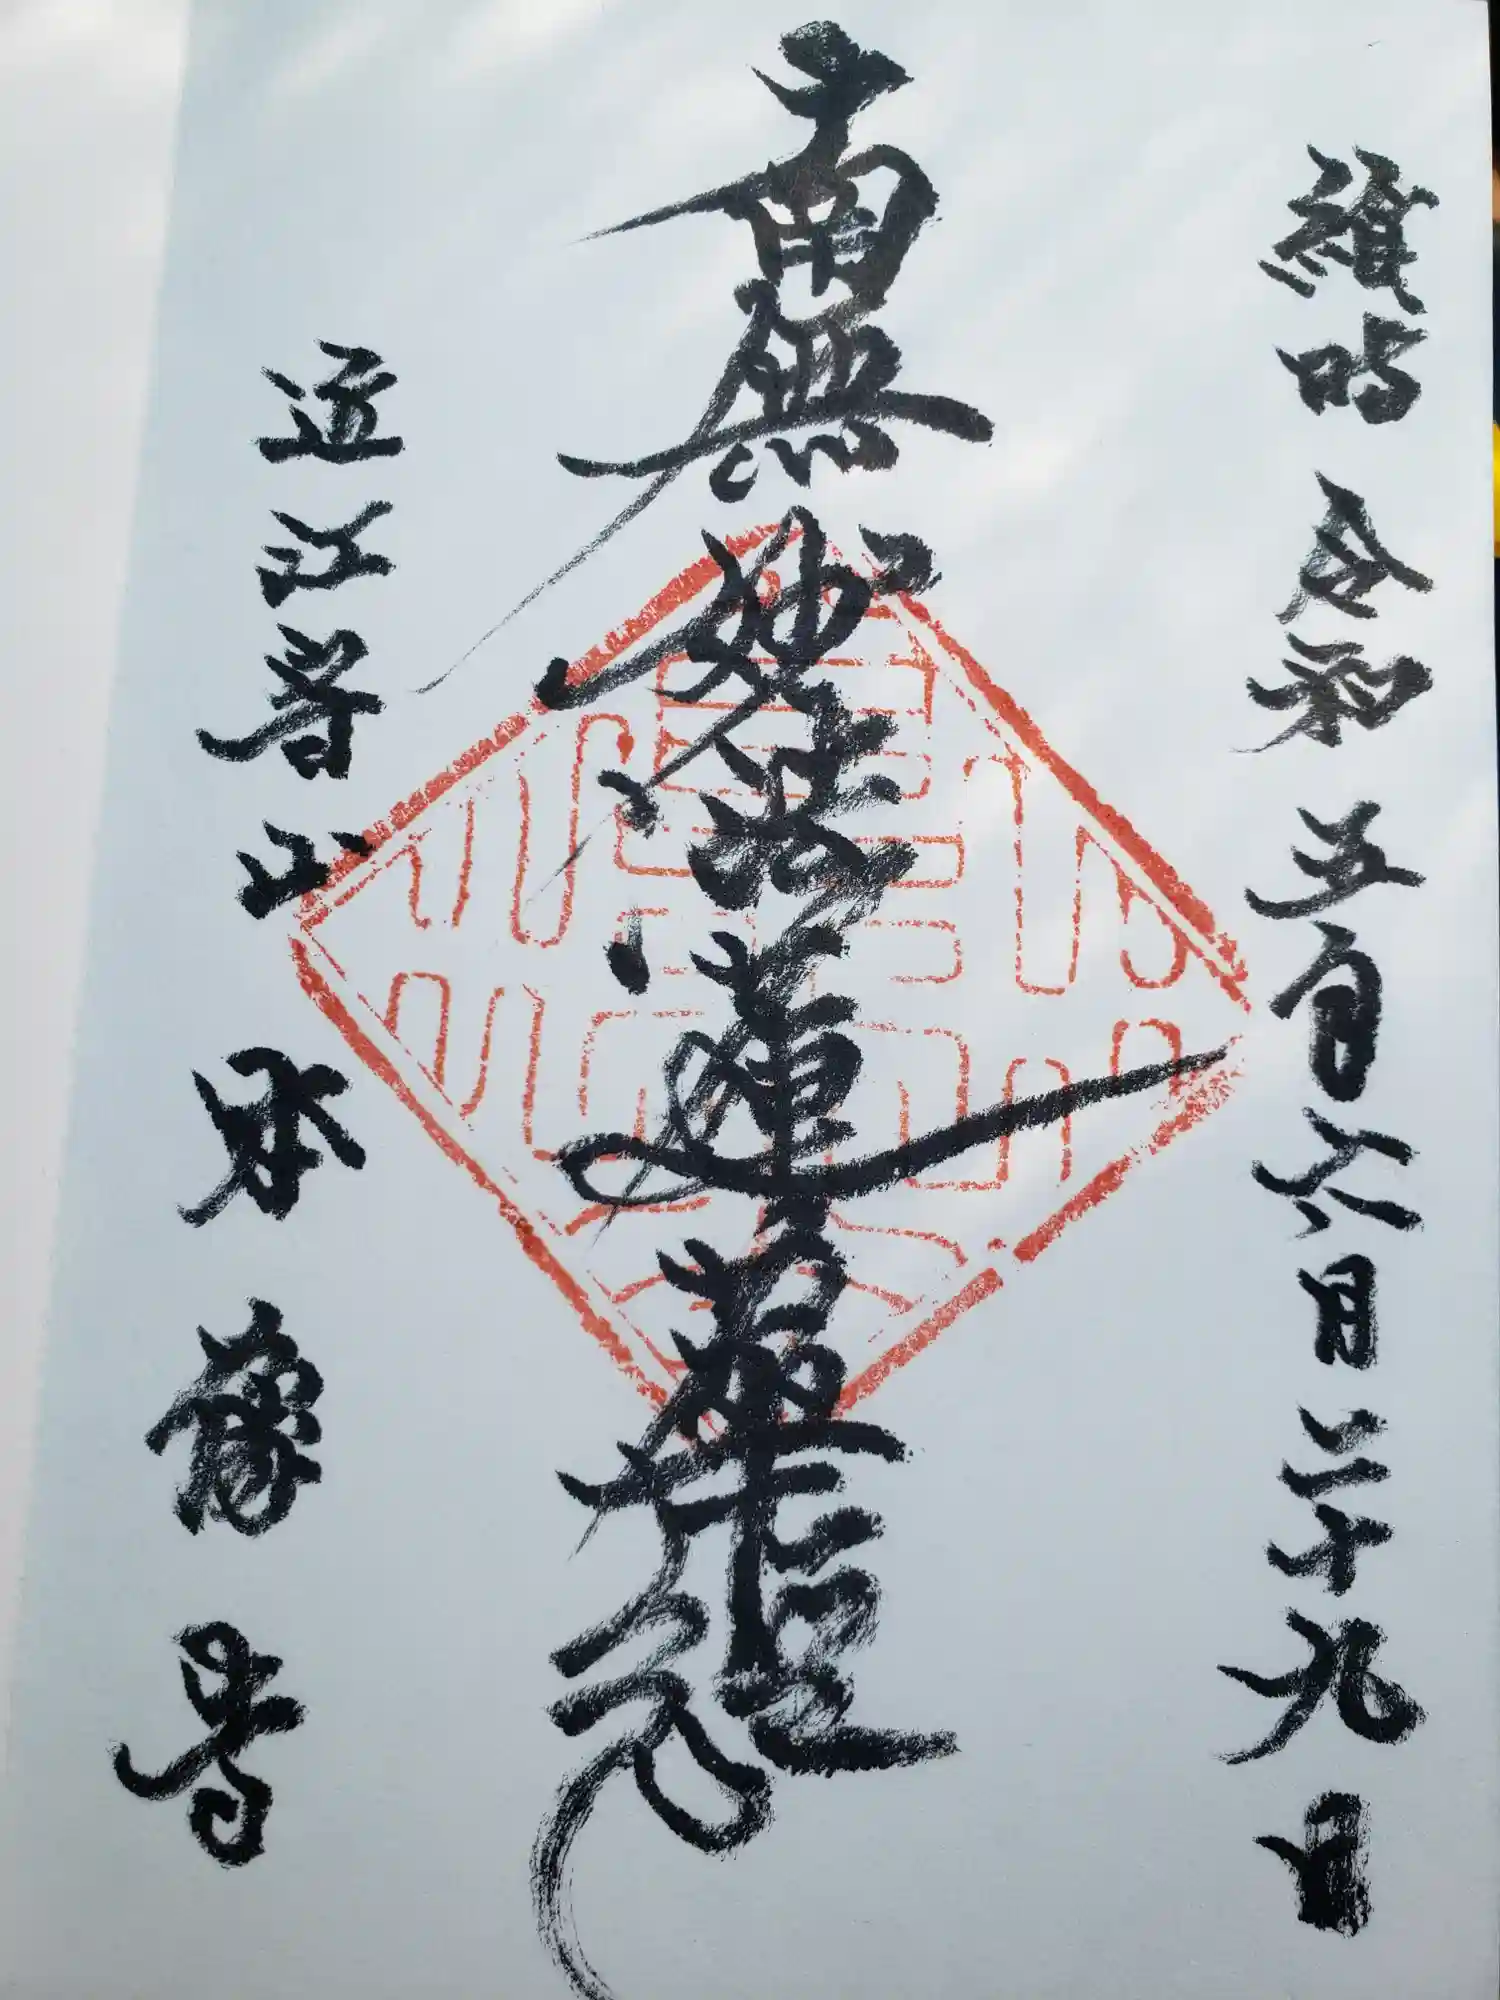 維時 令和 五年六月二十九日
南無妙法蓮華経
近江守山 本像寺